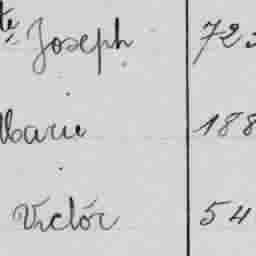 te Joseph 723
Marie 188
Victór 54